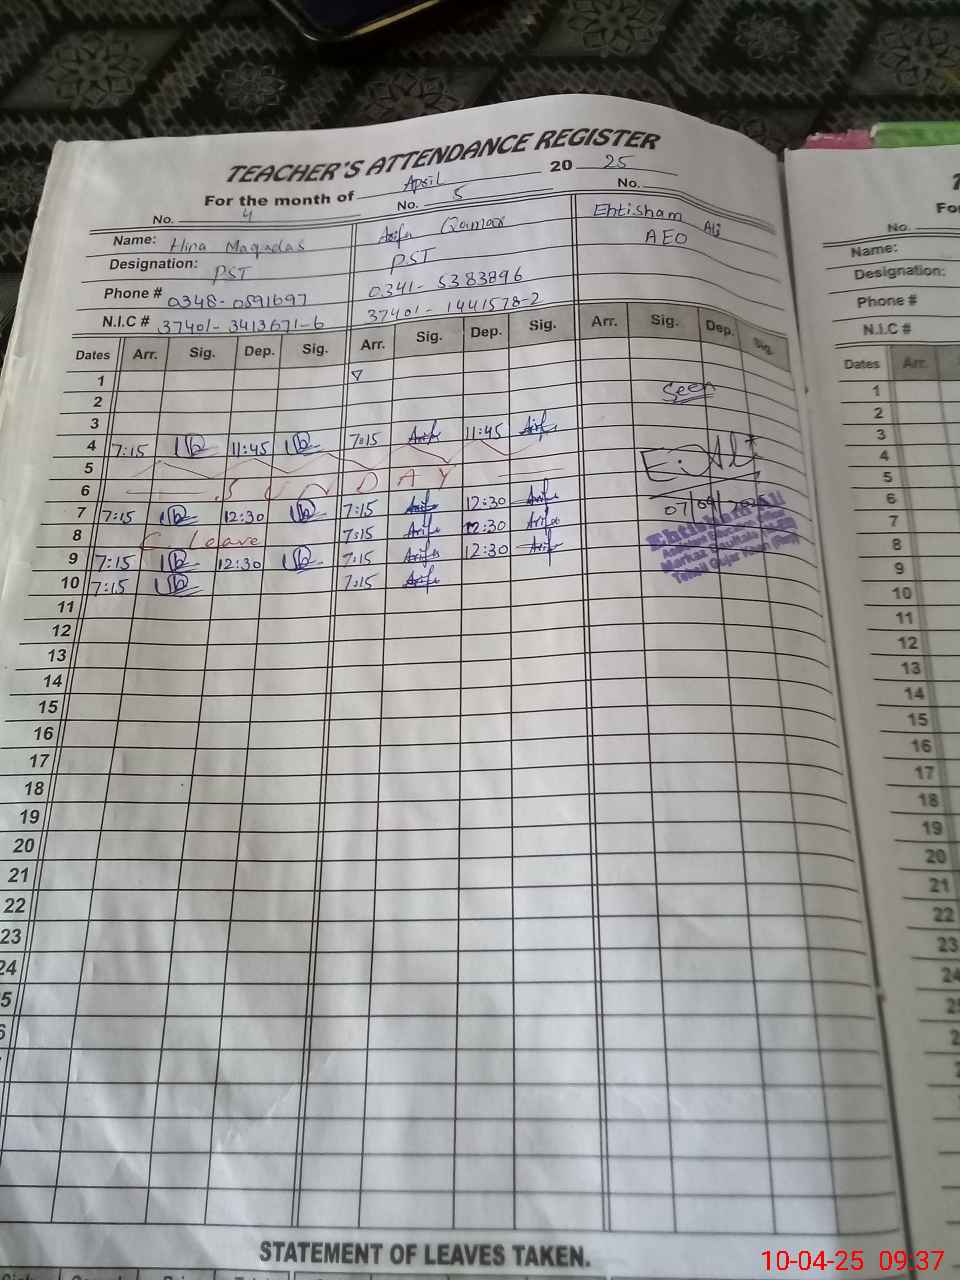 TEACHER'S ATTENDANCE REGISTER
For the month of April 2025
No. 4 No. 5 No.
Name: Hina Maqadas Arifa Qamar Ehtisham Ali
Designation: PST PST AEO
Phone # 0348-0591697 0341-5383896
N.I.C # 37401-3413671-6 37401-1441578-2
Dates Arr. Sig. Dep. Sig. Arr. Sig. Dep. Sig. Arr. Sig. Dep. Sig.
1
2 Seen
3
4 7:15 11:45 7:15 Arifa 11:45 Arifa
5
6 SUNDAY
7 7:15 12:30 7:15 Arifa 12:30 Arifa 07/04/2025
8 C. Leave 7:15 Arifa 12:30 Arifa
9 7:15 12:30 7:15 Arifa 12:30 Arifa
10 7:15 7:15 Arifa
11
12
13
14
15
16
17
18
19
20
21
22
23
24
5
6
STATEMENT OF LEAVES TAKEN.
No.
Name:
Designation:
Phone #
N.I.C #
Dates Arr.
1
2
3
4
5
6
7
8
9
10
11
12
13
14
15
16
17
18
19
20
21
22
23
24
10-04-25 09:37